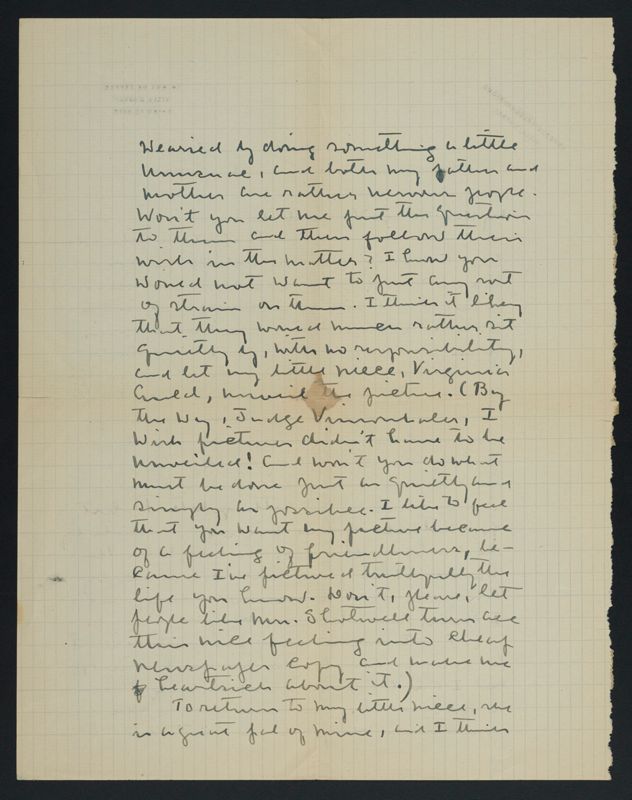 wearied by doing something a little
unusual, and both my father and
mother are rather nervous people.
Won't you let me put the question
to them and then follow their
wish in the matter? I know you
would not want to put any sort
of strain on them. I think it likely
that they would much rather sit
quietly by, with no responsibility,
and let my little niece, Virginia
Auld, unveil the picture. (By
the way, Judge Vinsonhaler, I
wish pictures didn't have to be
unveiled! And won't you do what
must be done just as quietly and
simply as possible. I like to feel
that you want my picture because
of a feeling of friendliness, be-
cause I've pictured truthfully the
life you know. Don't, please, let
people like Mrs. Shotwell turn all
this nice feeling into cheap
newspaper copy and make me
heartsick about it.)
To return to my little niece, she
is a great pal of mine, and I think